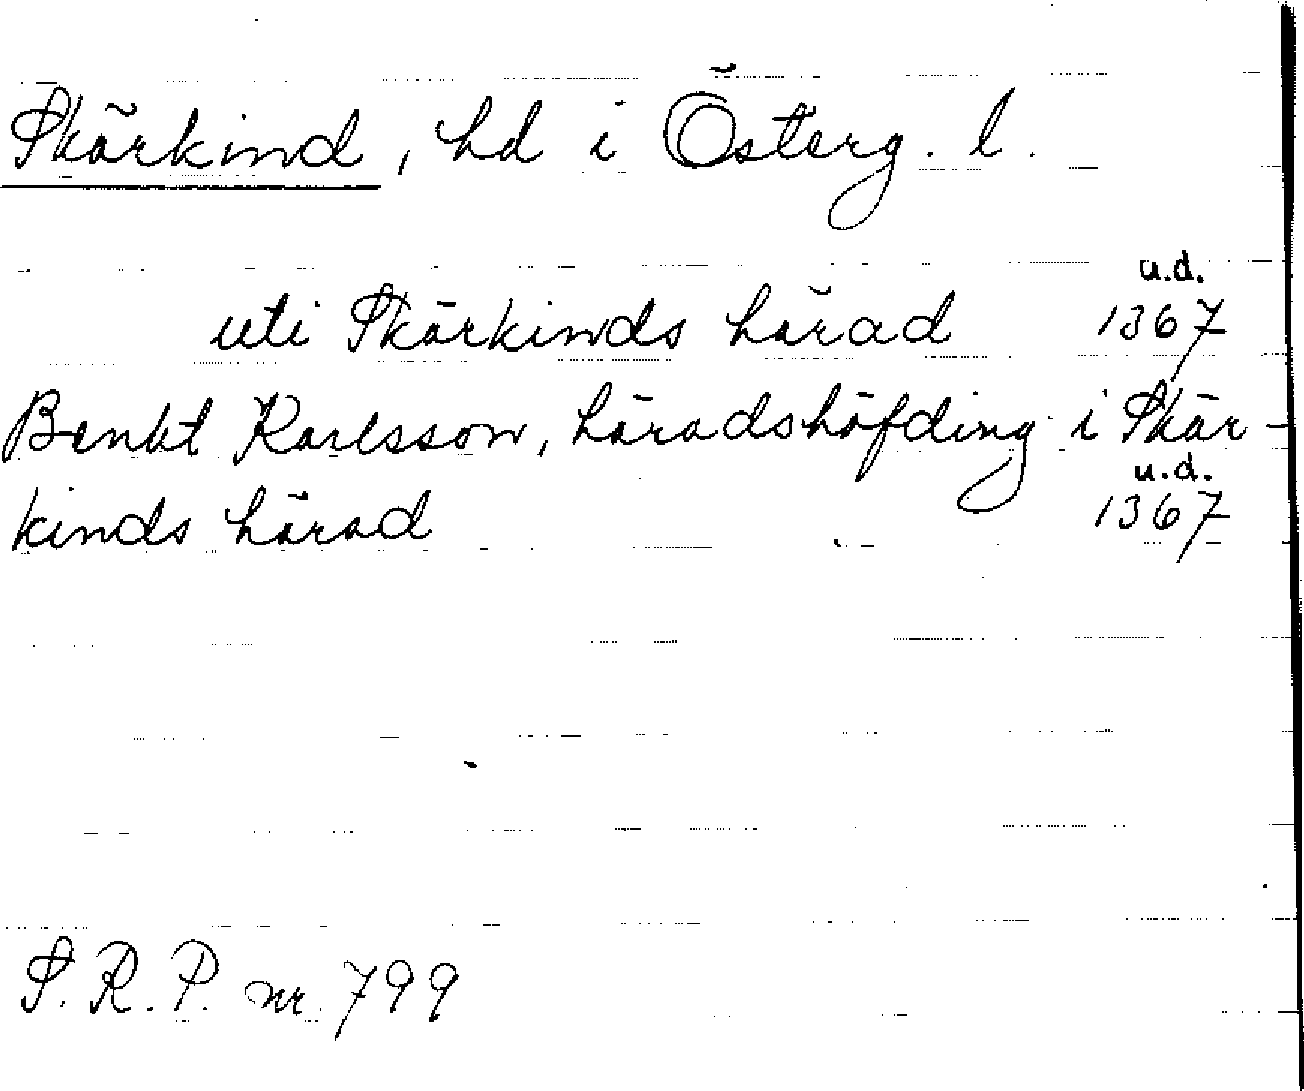 Skärkind, hd i Österg. l.
u.d.
uti Skärkinds härad 1367
Benkt Karlsson, häradshöfding i Skär-
u.d.
kinds härad 1367
S. R. P. nr. 799